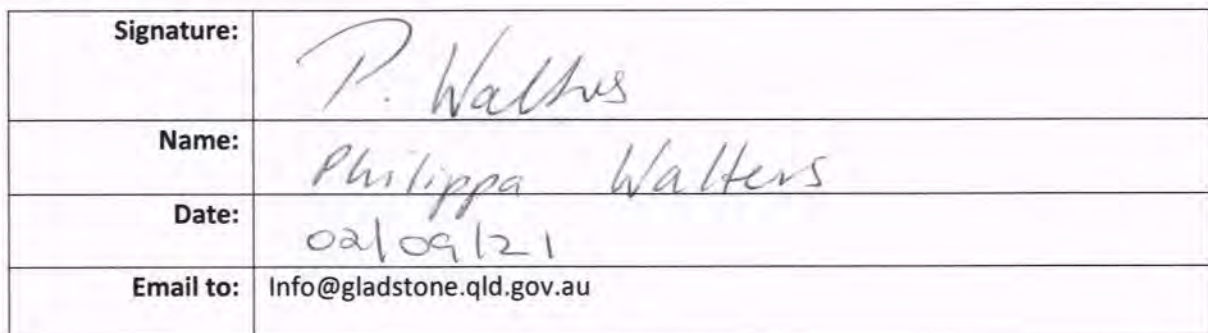 Signature: P. Walters
Name: Philippa Walters
Date: 02/09/21
Email to: Info@gladstone.qld.gov.au